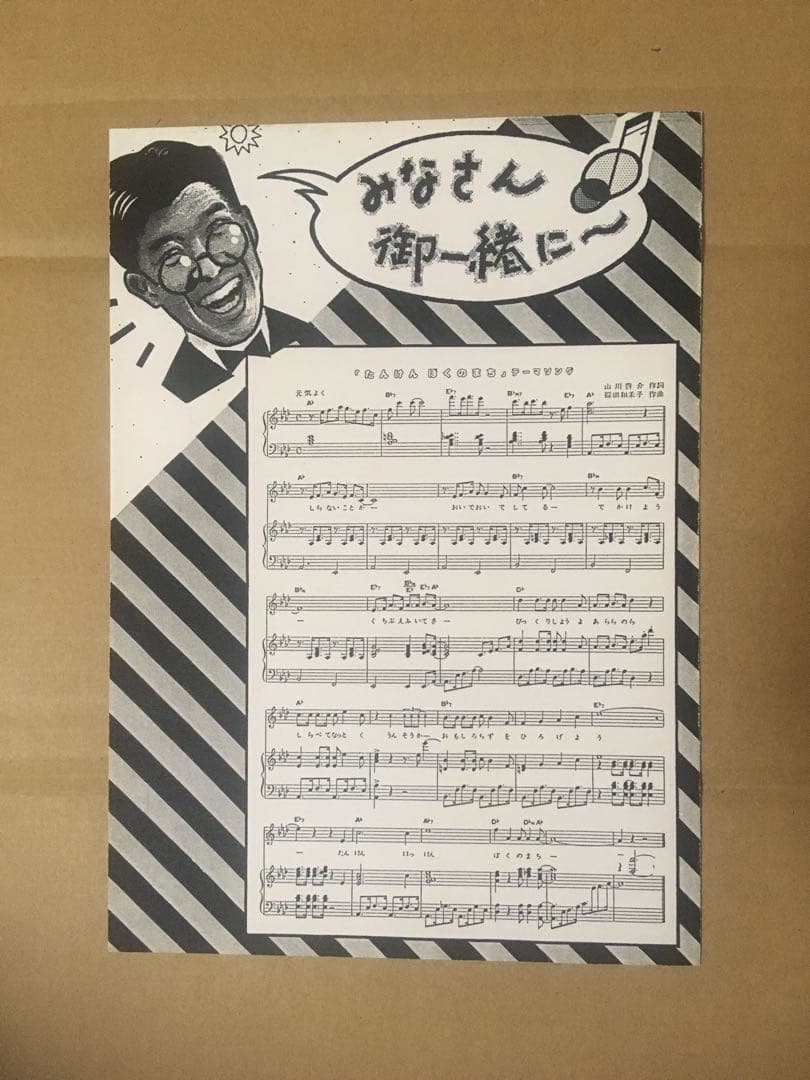 みなさん
御一緒に〜
「たんけん ぼくのまち」テーマソング
山川啓介 作詞
元気よく
作曲
A♭ B♭7 E♭7 B♭m7 E♭7 A♭
A♭ B♭7 B♭m
しらないことが― おいでおいで してる― でかけよう
B♭m E♭7 E♭7 A♭ D♭
― くちぶえふいてさ― びっくりしようよ あららのら
A♭ B♭7 E♭7
しらべてなっとく うんそうか― おもしろちずを ひろげよう
E♭7 A♭ A♭7 D♭ D♭m A♭
― たんけん はっけん ぼくのまち― ―